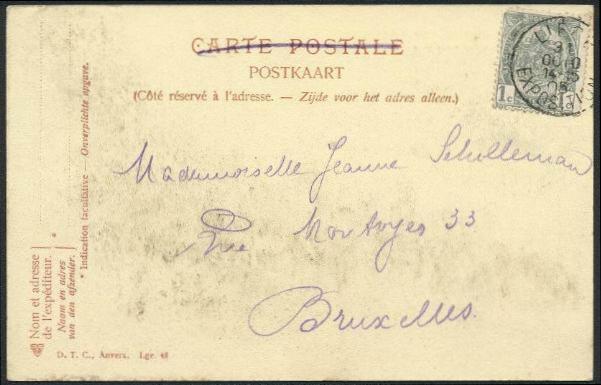 CARTE POSTALE
POSTKAART
(Côté réservé à l'adresse. — Zijde voor het adres alleen.)
1c
LIÈGE
3
OCTO
14-15
05
EXPOSITION
Mademoiselle Jeanne Schilleman
Rue Montoyer 33
Bruxelles.
Nom et adresse
de l'expéditeur.
Naam en adres
van den afzender.
*
* Indication facultative — Onverplichte opgave.
D. T. C., Anvers. Lgr. 48